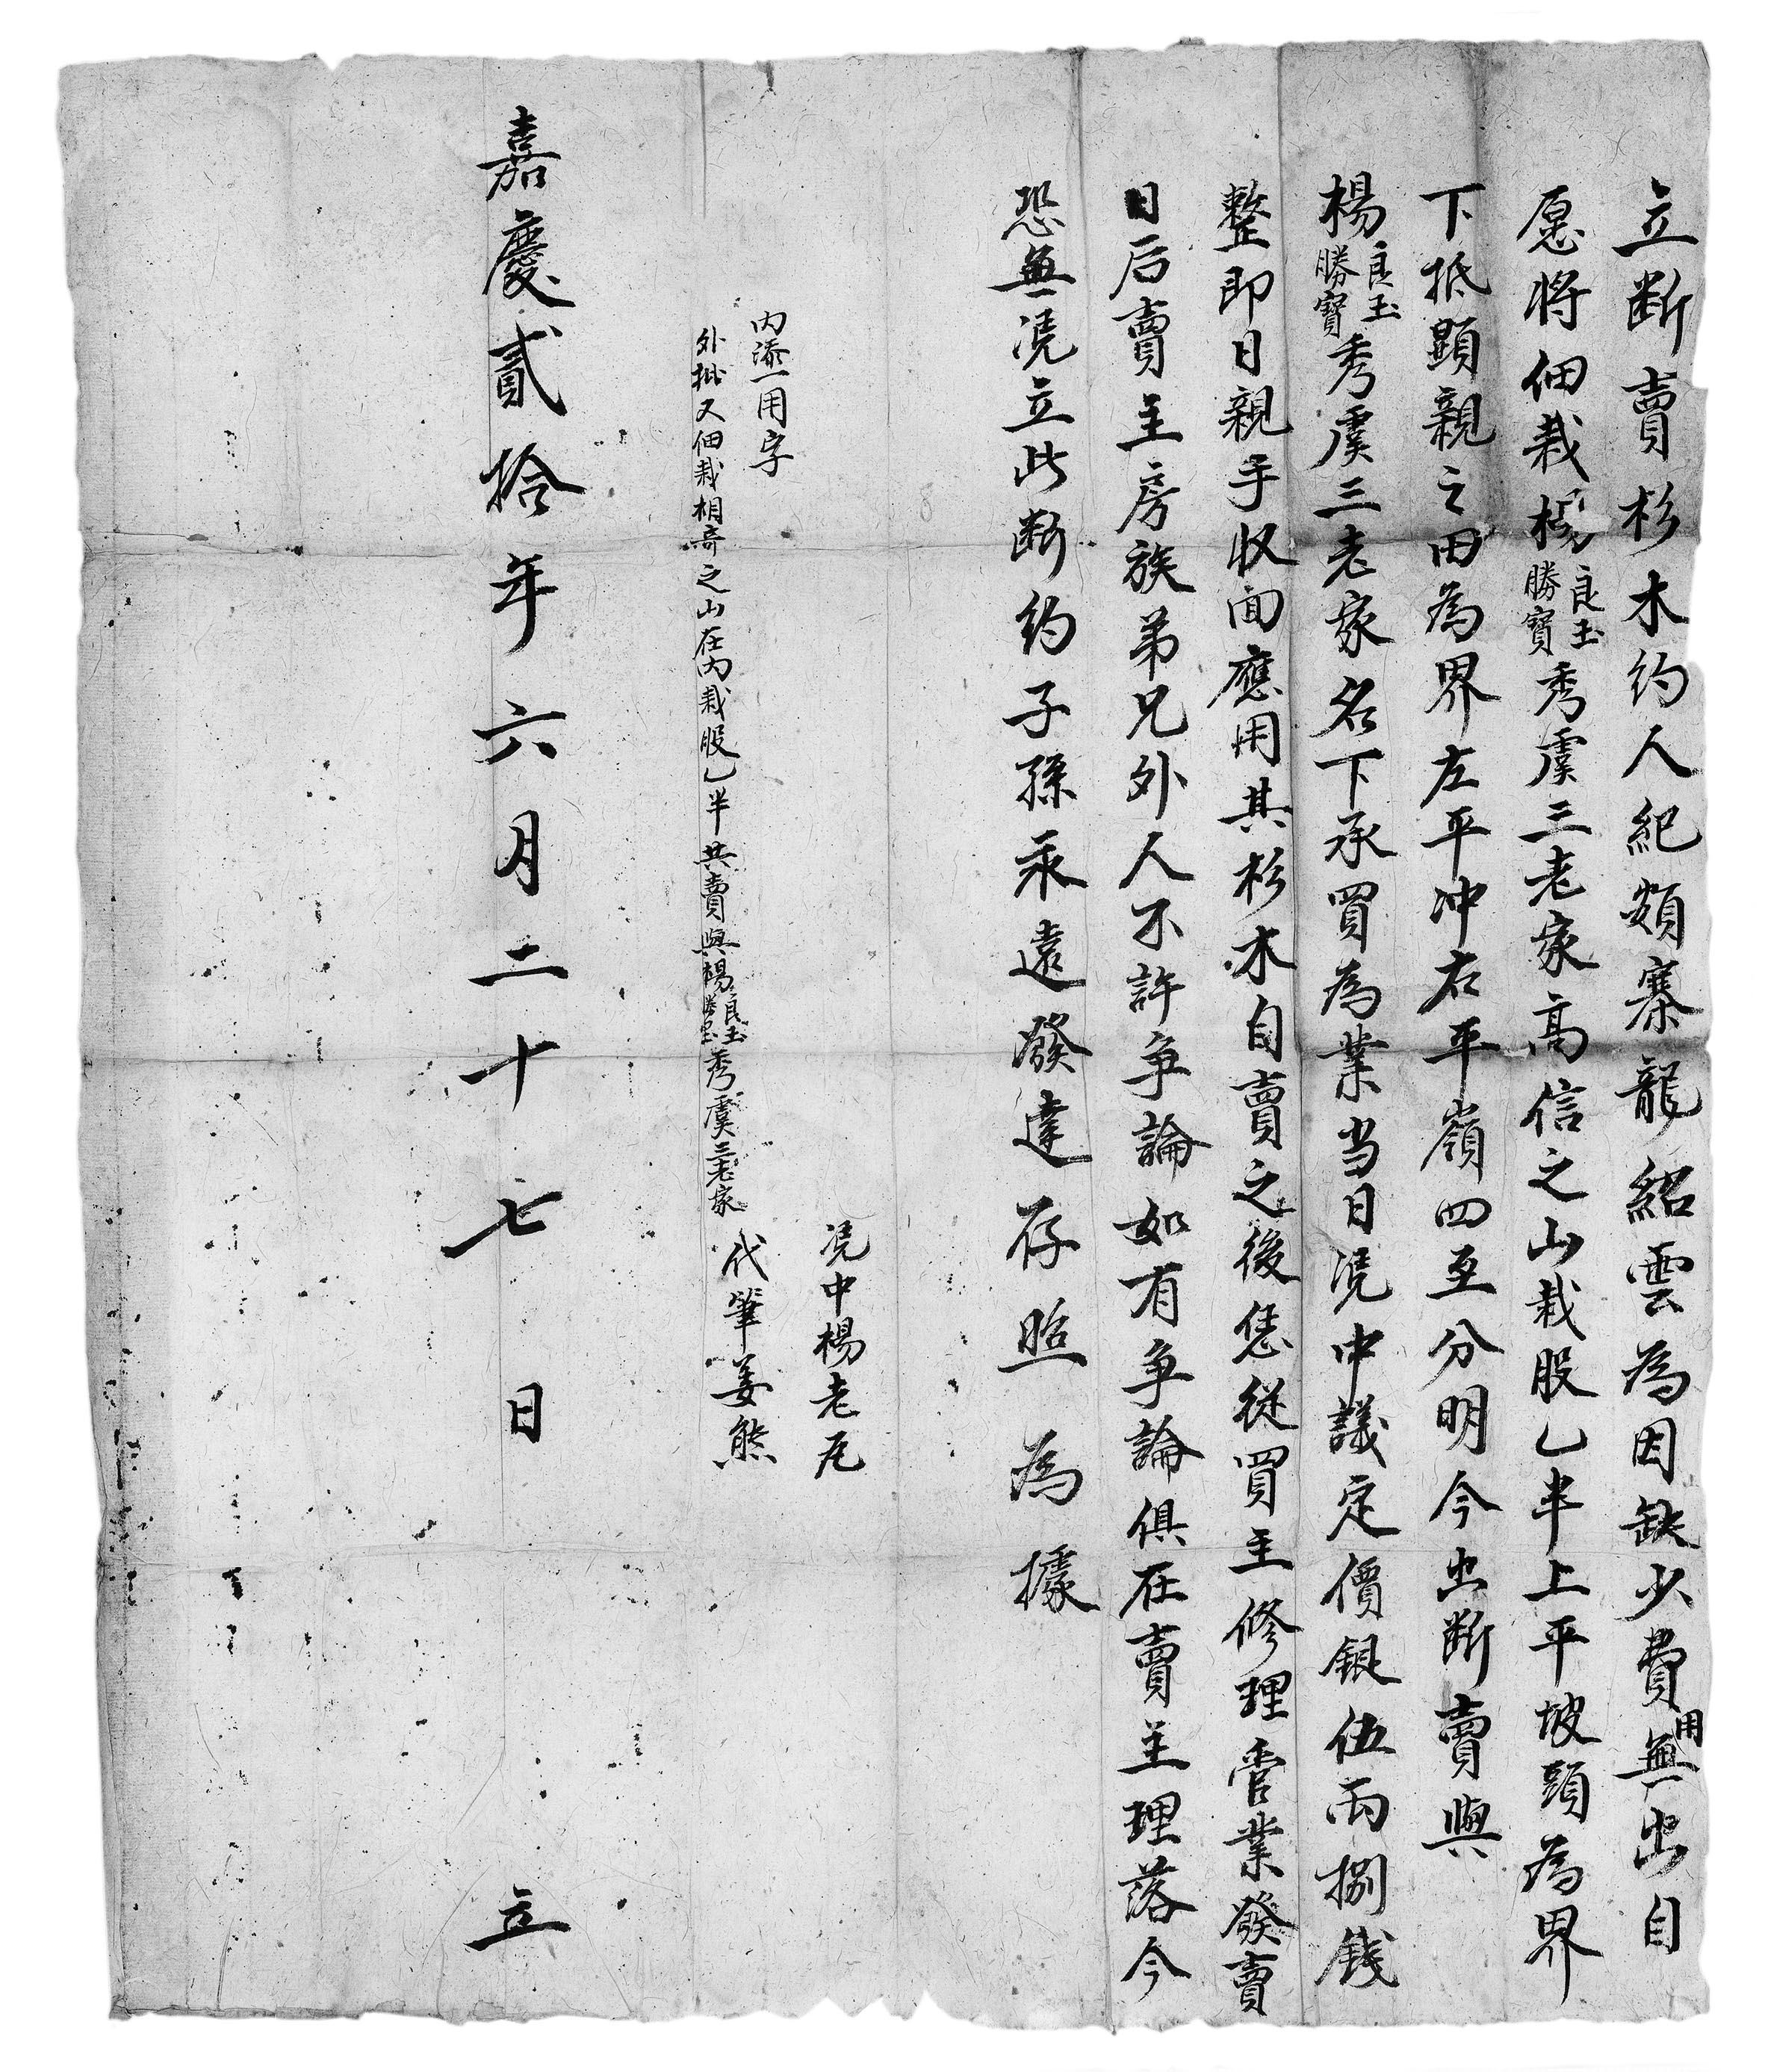 立断賣杉木約人紀頗寨龍紹雲為因缺少費用無出自
愿将佃栽楊良玉勝寶秀虞三老家高信之山栽股乙半上平坡頭為界
下抵顕親之田為界左平冲右平嶺四至分明今出断賣與
楊良玉勝寶秀虞三老家名下承買為業当日凴中議定價銀伍両捌錢
整即日親手收回應用其杉木自賣之後恁從買主修理管業發賣
日后賣主房族弟兄外人不許争論如有争論俱在賣主理落今
恐無凴立此断約子孫永遠發達存照為據
凴中楊老尨
內添一用字
代筆姜熊
外批又佃栽相奇之山在內栽股乙半共賣與楊良玉勝寶秀虞三老家
嘉慶貳拾年六月二十七日立